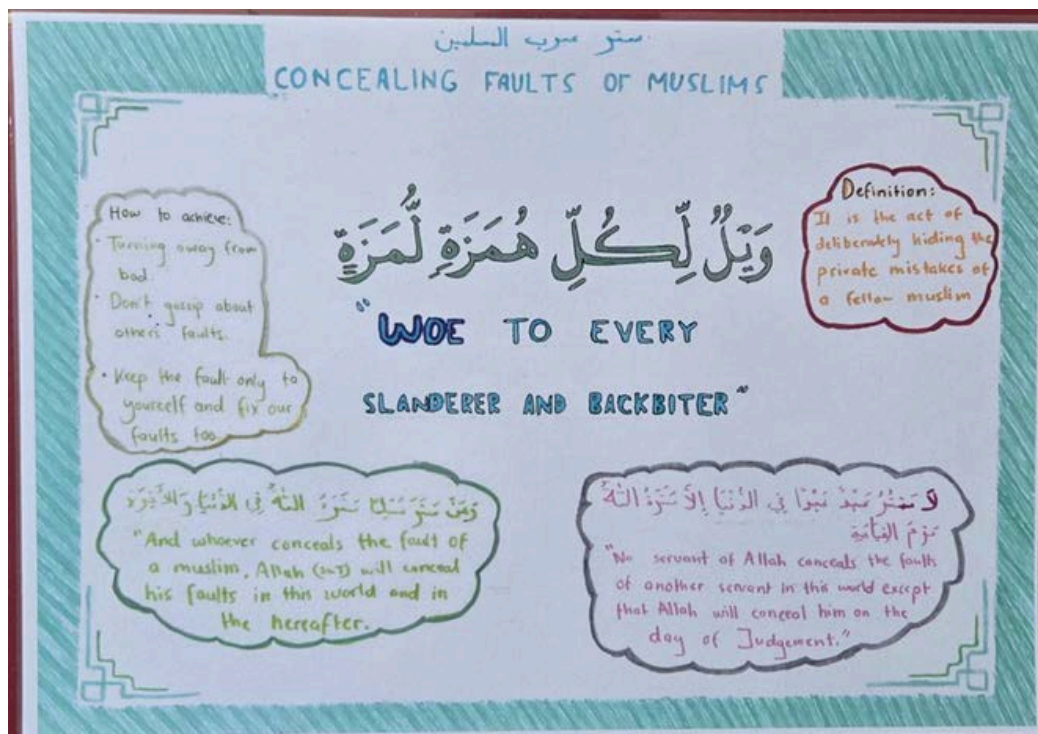 ستر عيوب المسلمين
CONCEALING FAULTS OF MUSLIMS
How to achieve:
• Turning away from
bad.
• Don't gossip about
others faults.
• Keep the fault only to
yourself and fix our
faults too
وَيْلٌ لِّكُلِّ هُمَزَةٍ لُّمَزَةٍ
"WOE TO EVERY
SLANDERER AND BACKBITER"
Definition:
It is the act of
deliberately hiding the
private mistakes of
a fellow muslim
وَمَنْ سَتَرَ مُسْلِمًا سَتَرَهُ اللَّهُ فِي الدُّنْيَا وَالْآخِرَةِ
"And whoever conceals the fault of
a muslim, Allah (SWT) will conceal
his faults in this world and in
the hereafter.
لَا يَسْتُرُ عَبْدٌ عَبْدًا فِي الدُّنْيَا إِلَّا سَتَرَهُ اللَّهُ
يَوْمَ الْقِيَامَةِ
"No servant of Allah conceals the faults
of another servant in this world except
that Allah will conceal him on the
day of Judgement."